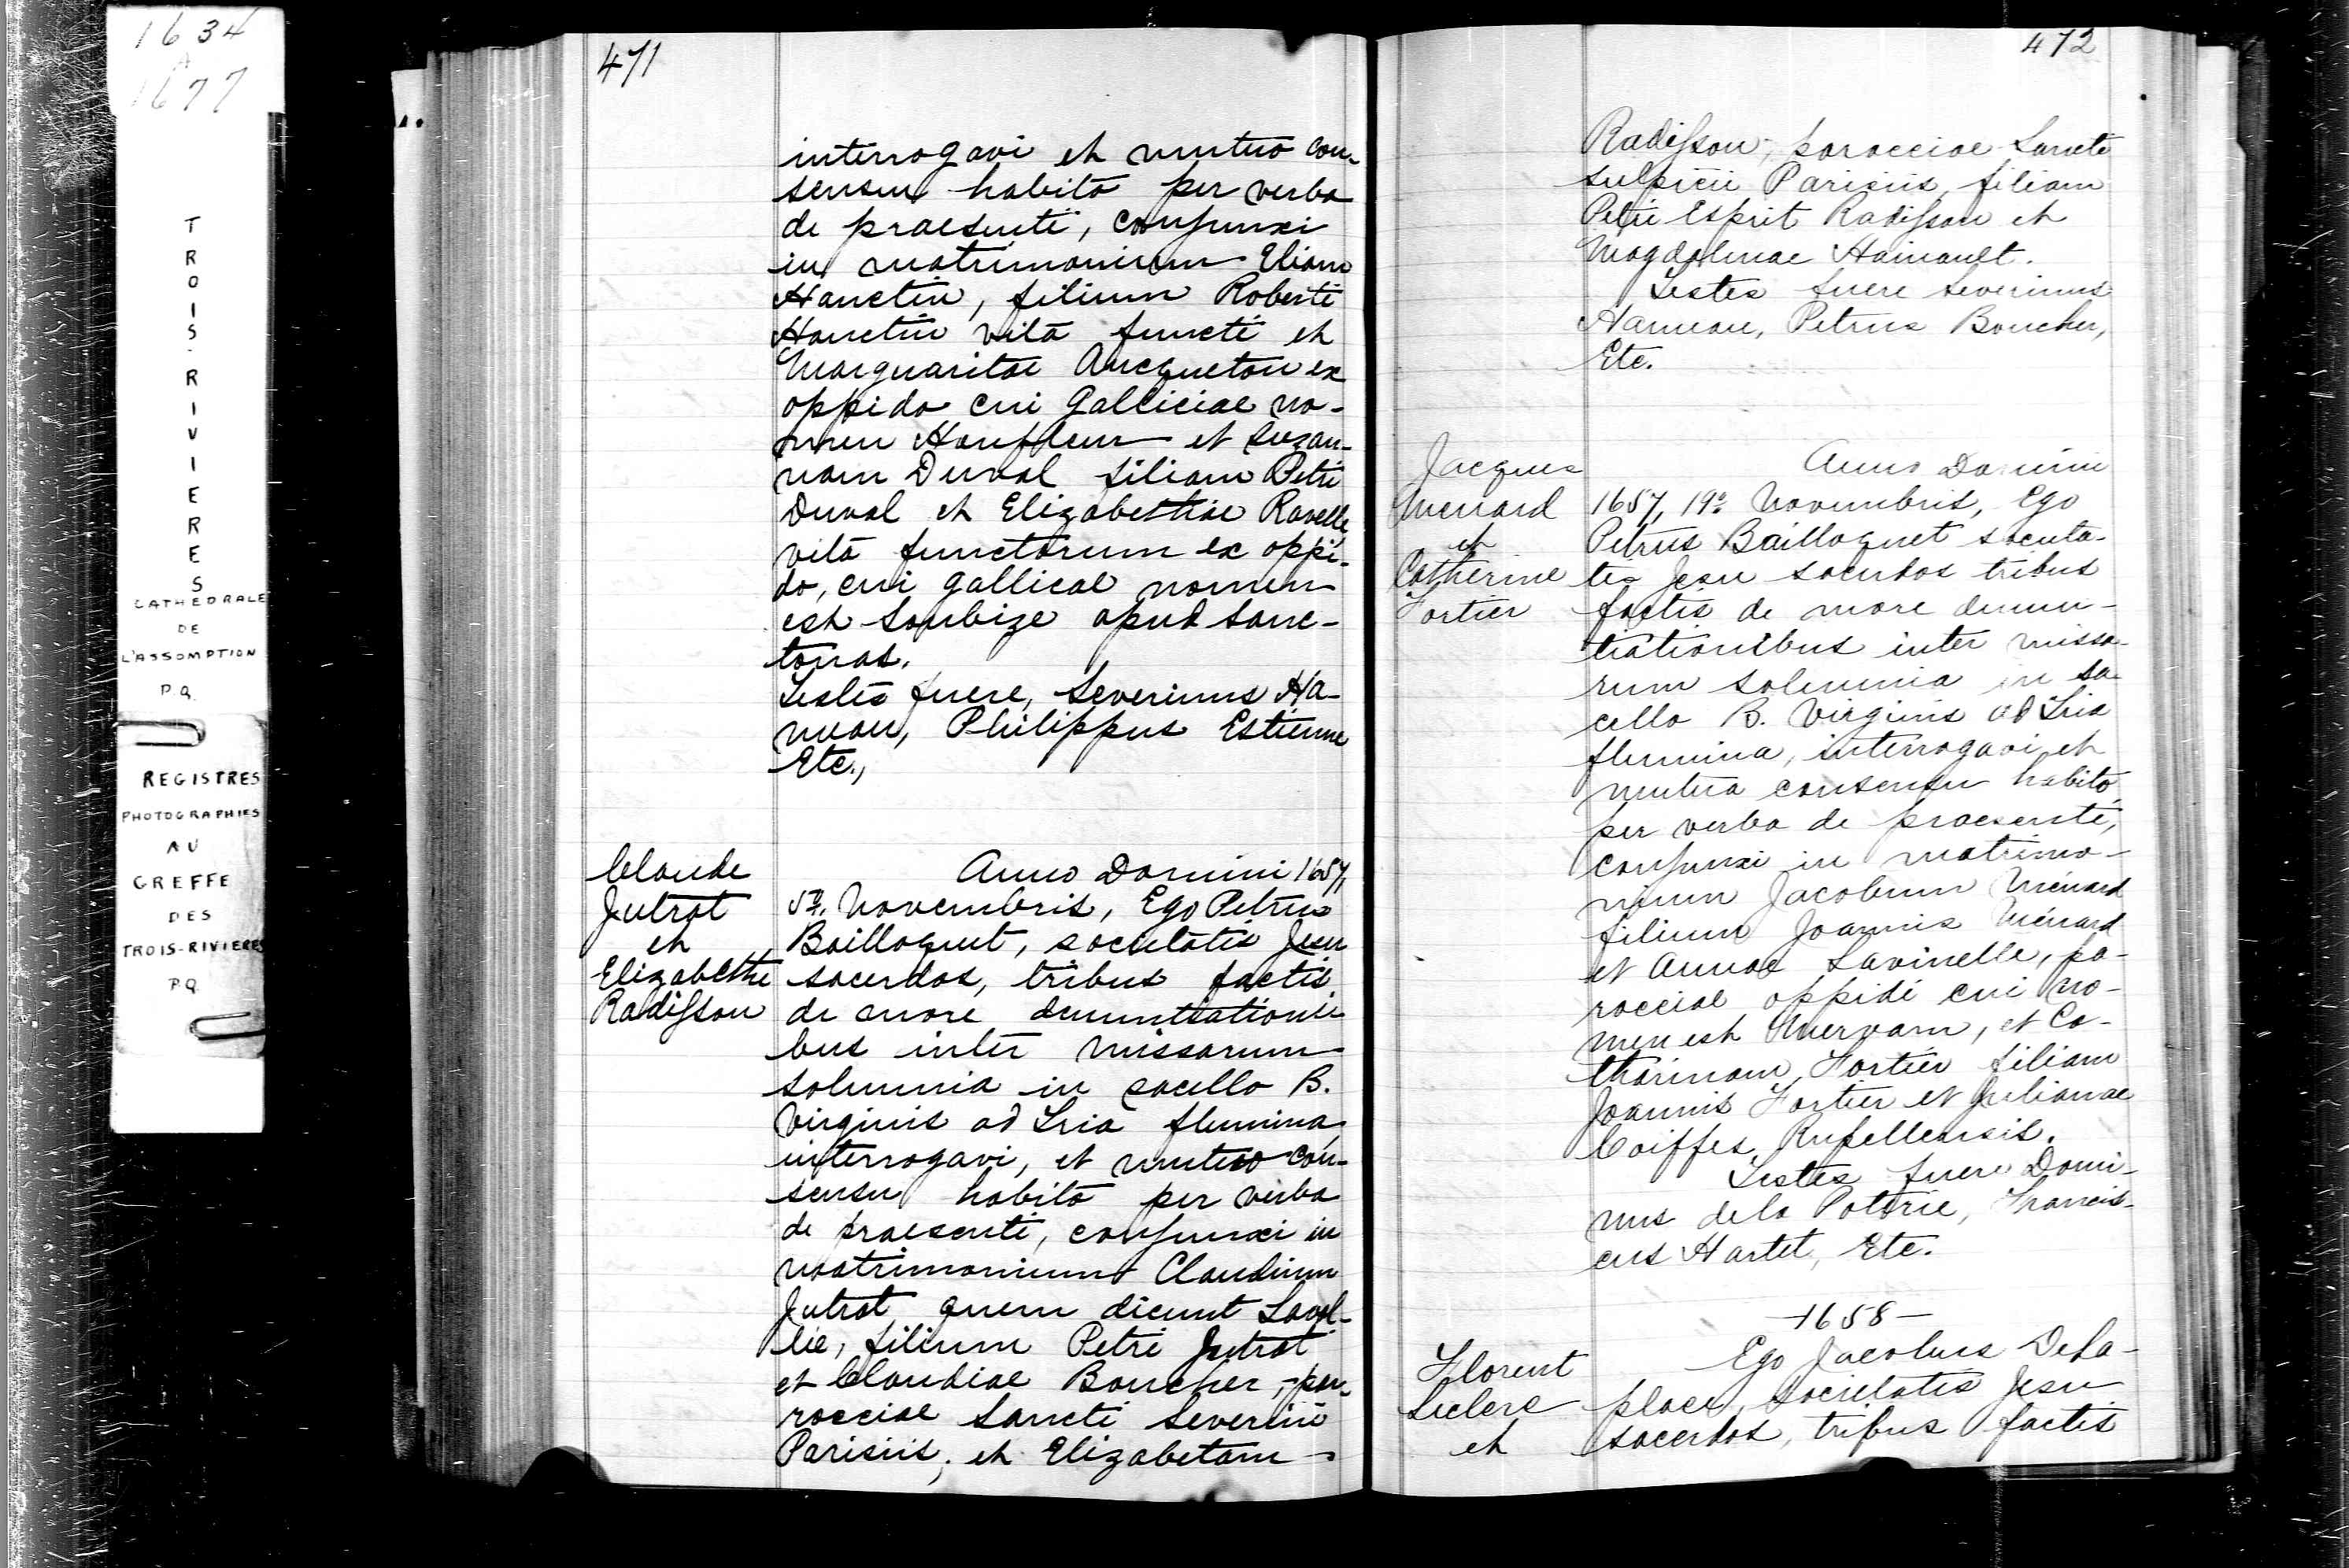 1634
A
1677
TROIS-RIVIERES
CATHEDRALE
DE
L'ASSOMPTION
P.Q.
REGISTRES
PHOTOGRAPHIES
AU
GREFFE
DES
TROIS-RIVIERES
P.Q.
471
interrogavi et mutuo con-
sensu habito per verba
de praesenti, conjunxi
in matrimonium Eliam
Hanctin, filium Roberti
Hanctin vita functi et
Marguaritae Aucqueton ex
oppido cui Galliciae no-
men Honfleur et Suzan-
nam Duval filiam Petri
Duval et Elizabethae Ravelle
vita functorum ex oppi-
do, cui gallicae nomen
est Soubize apud Sanc-
tonas.
Testes fuere, Severinus Ha-
meau, Philippus Estienne
Etc.,
Claude
Jutrat
et
Elizabethe
Radisson
Anno Domini 1657,
5a. Novembris, Ego Petrus
Bailloquet, societatis Jesu
sacerdos, tribus factis
de more denuntiationi
bus inter missarum
solemnia in sacello B.
Virginis ad Tria flumina
interrogavi, et mutuo con-
sensu habito per verba
de praesenti, conjunxi in
matrimonium Claudium
Jutrat quem dicunt Laval-
lie, filium Petri Jutrat
et Claudiae Boucher, par-
rocciae Sancti Severini
Parisiis, et Elizabetam
472
Radisson, parocciae Sancte
Sulpicii Parisiis, filiam
Petri Esprit Radisson et
Magdalenae Hainault.
Testes fuere Severinus
Hameau, Petrus Boucher,
Etc.
Jacques
Menard
et
Catherine
Fortier
Anno Domini
1657, 19a. Novembris, Ego
Petrus Bailloquet societa-
tis Jesu sacerdos tribus
factis de more denun-
tiationibus inter missa-
rum solemnia in sa-
cello B. Virginis ad Tria
flumina, interrogavi et
mutuo consensu habito
per verba de praesenti,
conjunxi in matrimo-
nium Jacobum Ménard
filium Joannis Ménard
et Annae Savinelle, pa-
rocciae oppidi cui no-
men est Mervam, et Ca-
tharinam Fortier filiam
Joannis Fortier et Julianae
Coiffes, Rupellensis.
Testes fuere Domi-
nus de la Potorie, Francis-
cus Hartet, Etc.
-1658-
Florent
Leclerc
et
Ego Jacobus Dela-
place, societatis Jesu
sacerdos, tribus factis